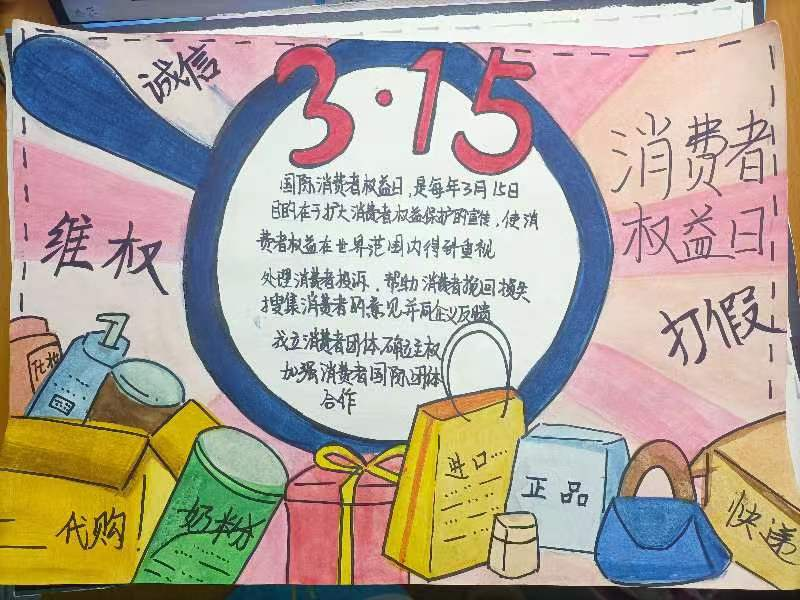 诚信
3·15
消费者
权益日
维权
打假
国际消费者权益日,是每年3月15日
目的在于扩大消费者权益保护的宣传,使消
费者权益在世界范围内得到重视
处理消费者投诉,帮助消费者挽回损失
搜集消费者的意见并向企业反馈
成立消费者团体,确立主权
加强消费者国际团体
合作
代购
奶粉
进口
正品
快递